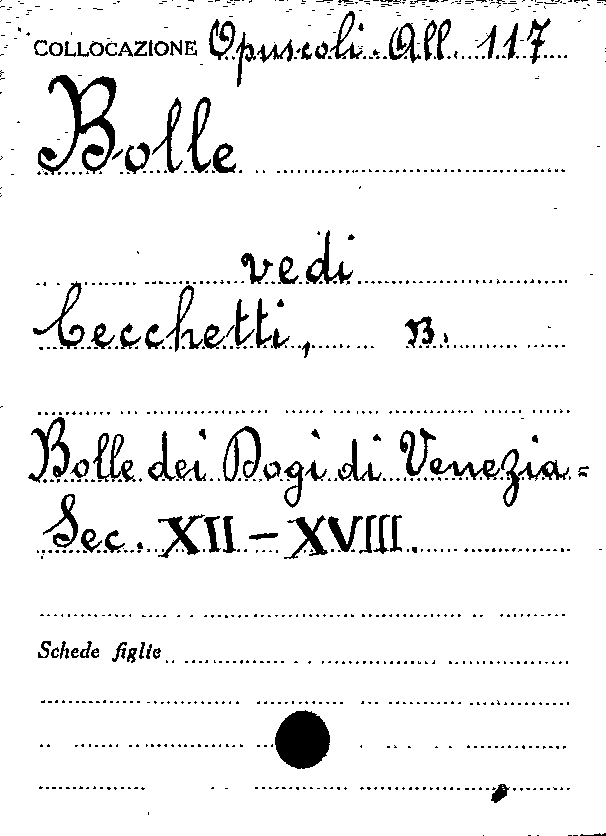 COLLOCAZIONE Opuscoli. All. 117
Bolle
vedi
Cecchetti, B.
Bolle dei Dogi di Venezia=
Sec. XII - XVIII.
Schede figlie